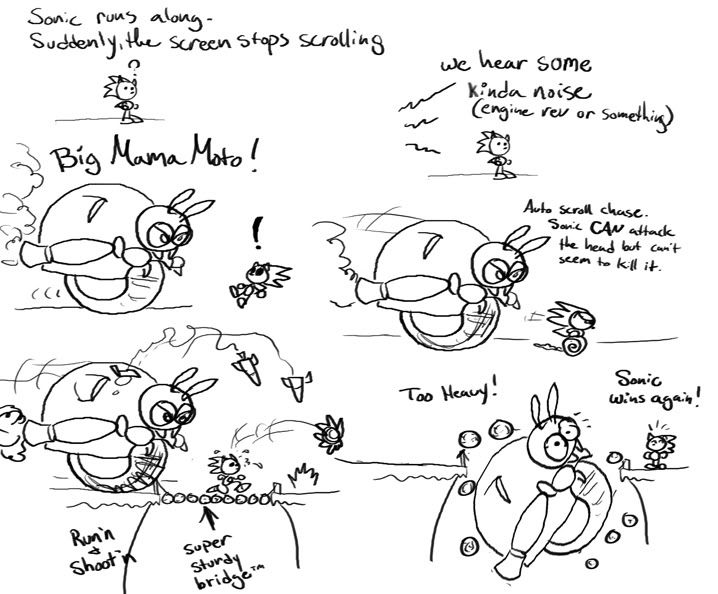 Sonic runs along-
Suddenly, the screen stops scrolling
?
we hear some
kinda noise
(engine rev or something)
Big Mama Moto!
!
Auto scroll chase.
Sonic CAN attack
the head but can't
seem to kill it.
Run'n
&
Shoot'n
super
sturdy
bridge™
Too Heavy!
Sonic
wins again!